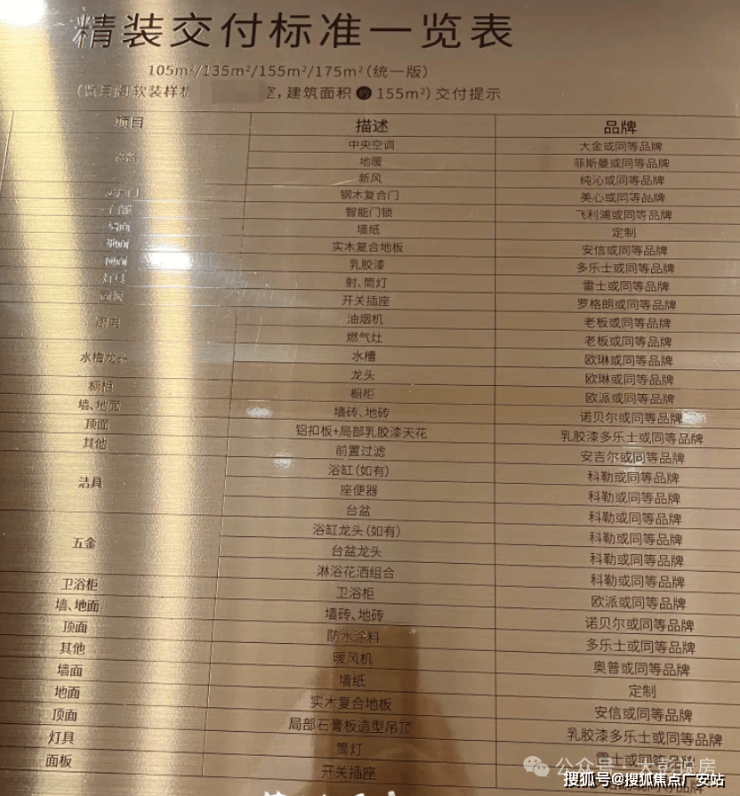 精装交付标准一览表
105m²/135m²/155m²/175m²(统一版)
软装样 室,建筑面积 155m²)交付提示
项目 描述 品牌
中央空调 大金或同等品牌
地暖 菲斯曼或同等品牌
新风 纯沁或同等品牌
钢木复合门 美心或同等品牌
智能门锁 飞利浦或同等品牌
墙纸 定制
实木复合地板 安信或同等品牌
乳胶漆 多乐士或同等品牌
射、筒灯 雷士或同等品牌
开关插座 罗格朗或同等品牌
油烟机 老板或同等品牌
燃气灶 老板或同等品牌
水槽 欧琳或同等品牌
龙头 欧琳或同等品牌
橱柜 橱柜 欧派或同等品牌
墙、地面 墙砖、地砖 诺贝尔或同等品牌
顶面 铝扣板+局部乳胶漆天花 乳胶漆多乐士或同等品牌
其他 前置过滤 安吉尔或同等品牌
洁具 浴缸(如有) 科勒或同等品牌
座便器 科勒或同等品牌
台盆 科勒或同等品牌
五金 浴缸龙头(如有) 科勒或同等品牌
台盆龙头 科勒或同等品牌
淋浴花洒组合 科勒或同等品牌
卫浴柜 卫浴柜 欧派或同等品牌
墙、地面 墙砖、地砖 诺贝尔或同等品牌
顶面 防水涂料 多乐士或同等品牌
其他 暖风机 奥普或同等品牌
墙面 墙纸 定制
地面 实木复合地板 安信或同等品牌
顶面 局部石膏板造型吊顶 乳胶漆多乐士或同等品牌
灯具 筒灯 雷士或同等品牌
面板 开关插座
公众号·大彭说房
搜狐号@搜狐焦点广安站